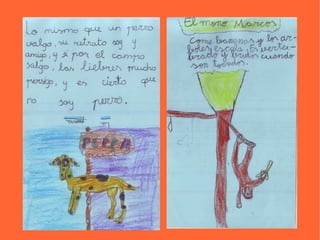 Lo mismo que un perro
valgo, su retrato soy y
amigo, y si por el campo
salgo, las liebres mucho
persigo, y es cierto que
no soy perro.
El mono Marcos
Come bananas y los ar-
boles escala. Es verte-
brado y
son todos.